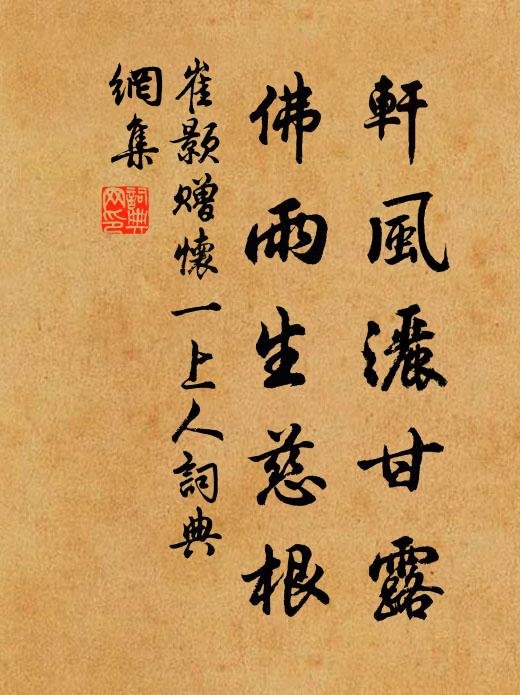 軒風灑甘露
佛雨生慈根
崔顥贈懷一上人詞典
網集
詞典
网印